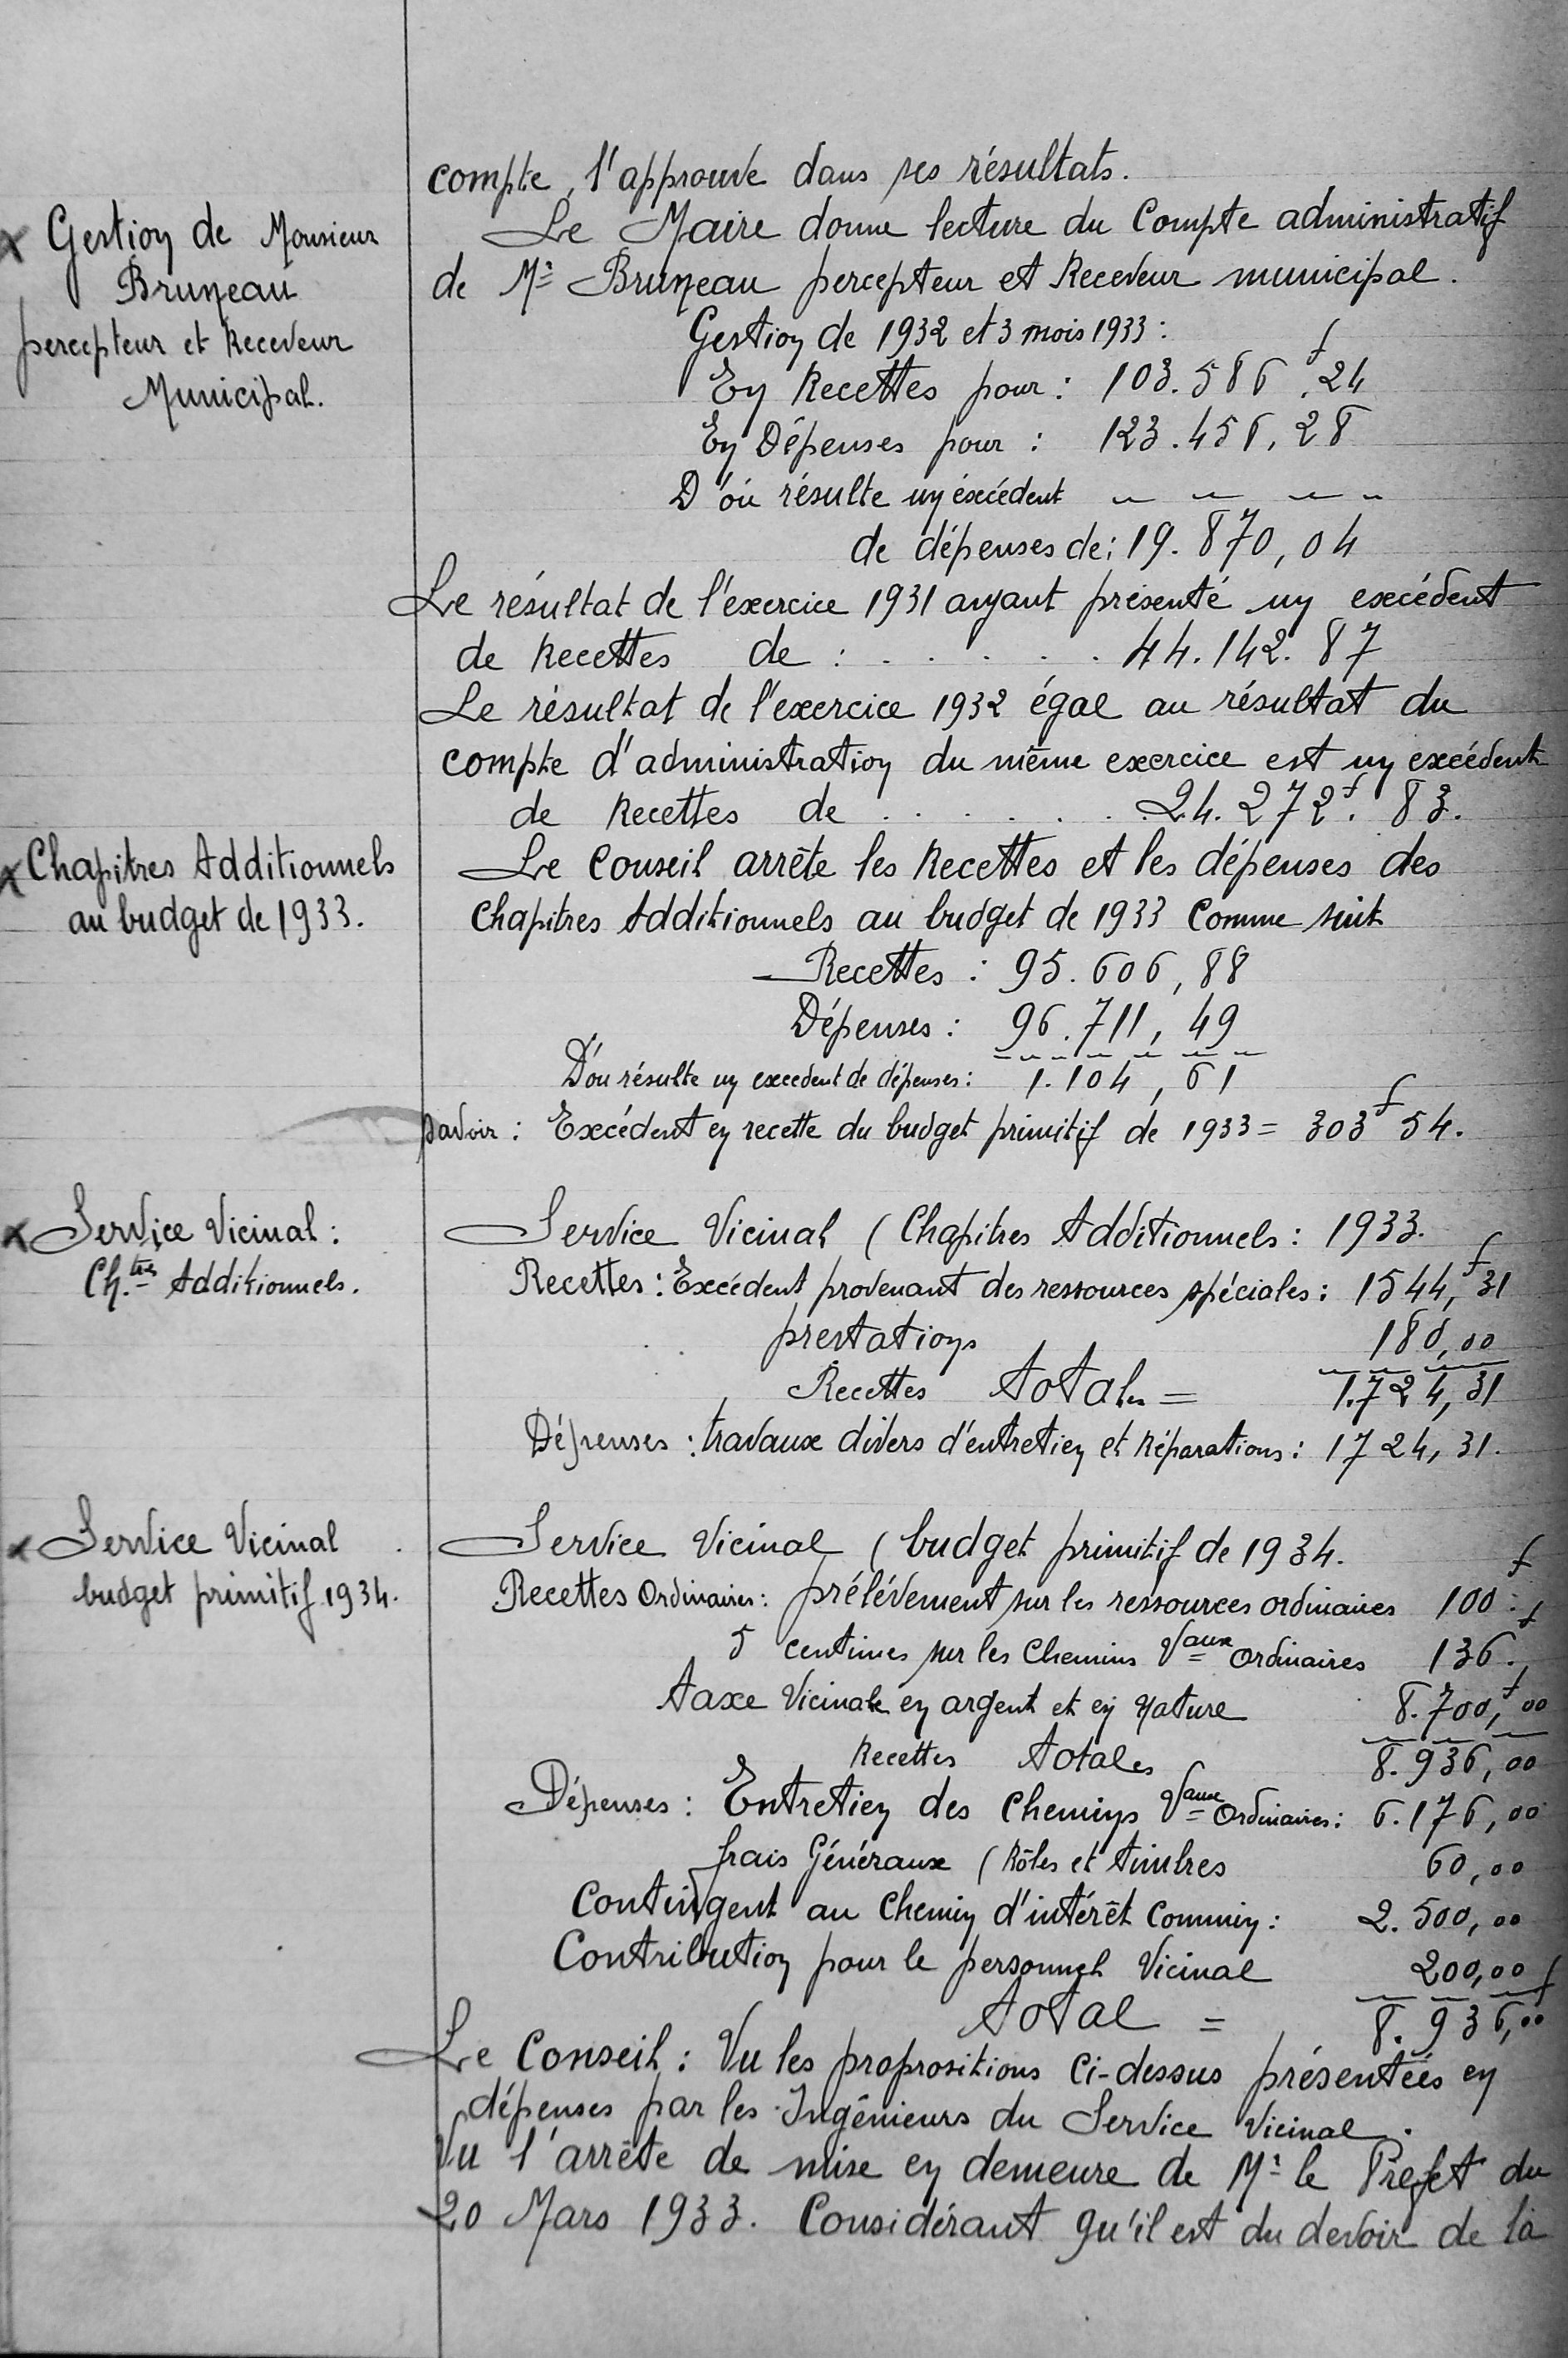 compte, l'approuve dans ses résultats.
x Gestion de Monsieur
Bruneau
percepteur et Receveur
Municipal.
Le Maire donne lecture du Compte administratif
de Mr Bruneau percepteur et Receveur municipal.
Gestion de 1932 et 3 mois 1933 :
En Recettes pour : 103.586f.24
En Dépenses pour : 123.456,28
D'où résulte un éxcédent
de dépenses de : 19.870,04
Le résultat de l'exercice 1931 ayant présenté un excédent
de Recettes de : . . . . . . 44.142.87
Le résultat de l'exercice 1932 égal au résultat du
compte d'administration du même exercice est un excédent
de Recettes de . . . . . . . 24.272f.83.
x Chapitres Additionnels
au budget de 1933.
Le Conseil arrête les Recettes et les dépenses des
Chapitres Additionnels au budget de 1933 Comme suit
Recettes : 95.606,88
Dépenses : 96.711,49
D'où résulte un excedent de dépenses : 1.104,61
savoir : Excédent en recette du budget primitif de 1933 = 303f54.
x Service Vicinal :
Ch.tres Additionnels.
Service Vicinal (Chapitres Additionnels : 1933.
Recettes : Excédent provenant des ressources spéciales : 1544,f31
prestations 180,00
Recettes totales = 1.724,31
Dépenses : travaux divers d'entretien et Réparations : 1724,31.
x Service Vicinal
budget primitif 1934.
Service Vicinal (budget primitif de 1934.
Recettes Ordinaires : prélévement sur les ressources ordinaires 100.f
5 centimes sur les Chemins Vaux Ordinaires 136.f
taxe Vicinale en argent et en nature 8.700,f00
Recettes totales 8.936,00
Dépenses : Entretien des Chemins Vaux Ordinaires : 6.176,00
frais Généraux (Rôles et timbres 60,00
Contingent au Chemin d'intérêt Commun : 2.500,00
Contribution pour le personnel Vicinal 200,00
total = 8.936,f00
Le Conseil : Vu les propositions Ci-dessus présentées en
dépenses par les Ingénieurs du Service Vicinal.
Vu l'arrête de mise en demeure de Mr le Prefet du
20 Mars 1933. Considérant qu'il est du devoir de la